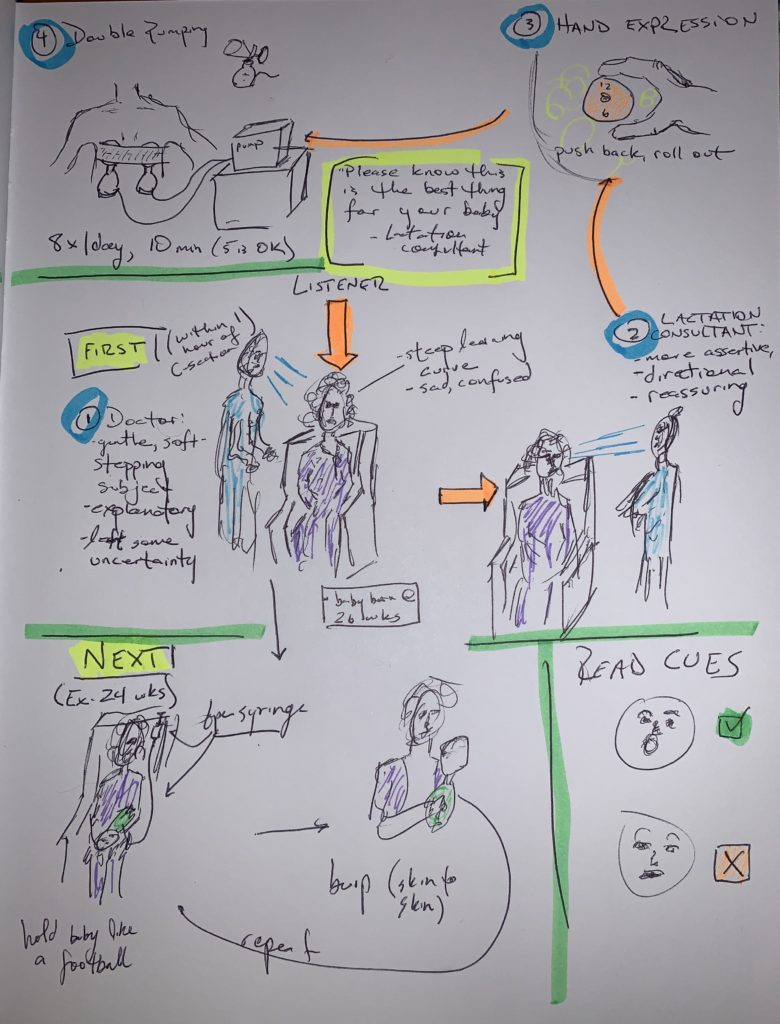 4 Double Pumping
pump
8x/day, 10 min (5 is OK)
3 HAND EXPRESSION
12
6
push back, roll out
"Please know this
is the best thing
for your baby"
- Lactation
consultant
LISTENER
FIRST
(within 1
hour of
C-section)
1 Doctor:
- gentle, soft-
stepping
subject
- explanatory
- left some
uncertainty
- steep learning
curve
- sad, confused
2 LACTATION
CONSULTANT:
- more assertive,
- directional
- reassuring
baby born @
26 wks
NEXT
(Ex. 24 wks)
syringe
hold baby like
a football
burp (skin to
skin)
repeat
READ CUES